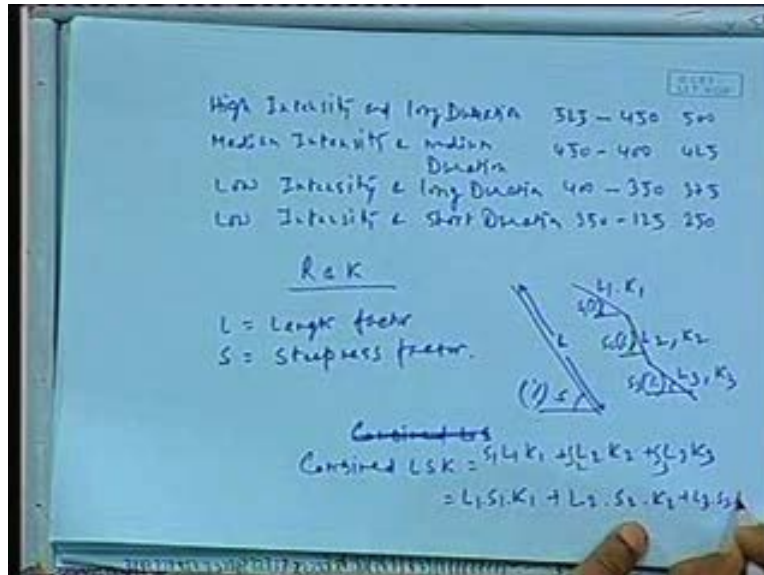 High Intensity and long Duration 525 - 450 500
Medium Intensity & medium Duration 450 - 400 425
Low Intensity & long Duration 400 - 350 375
Low Intensity & Short Duration 350 - 125 250
R & K
L = Length factor
S = Steepness factor.
L1. K1
S1(%)
L2, K2
S2(%)
L3, K3
S3(%)
L
(%) S
Combined LS
Combined LSK = S1L1K1 + S2L2K2 + S3L3K3
= L1.S1.K1 + L2.S2.K2 + L3.S3